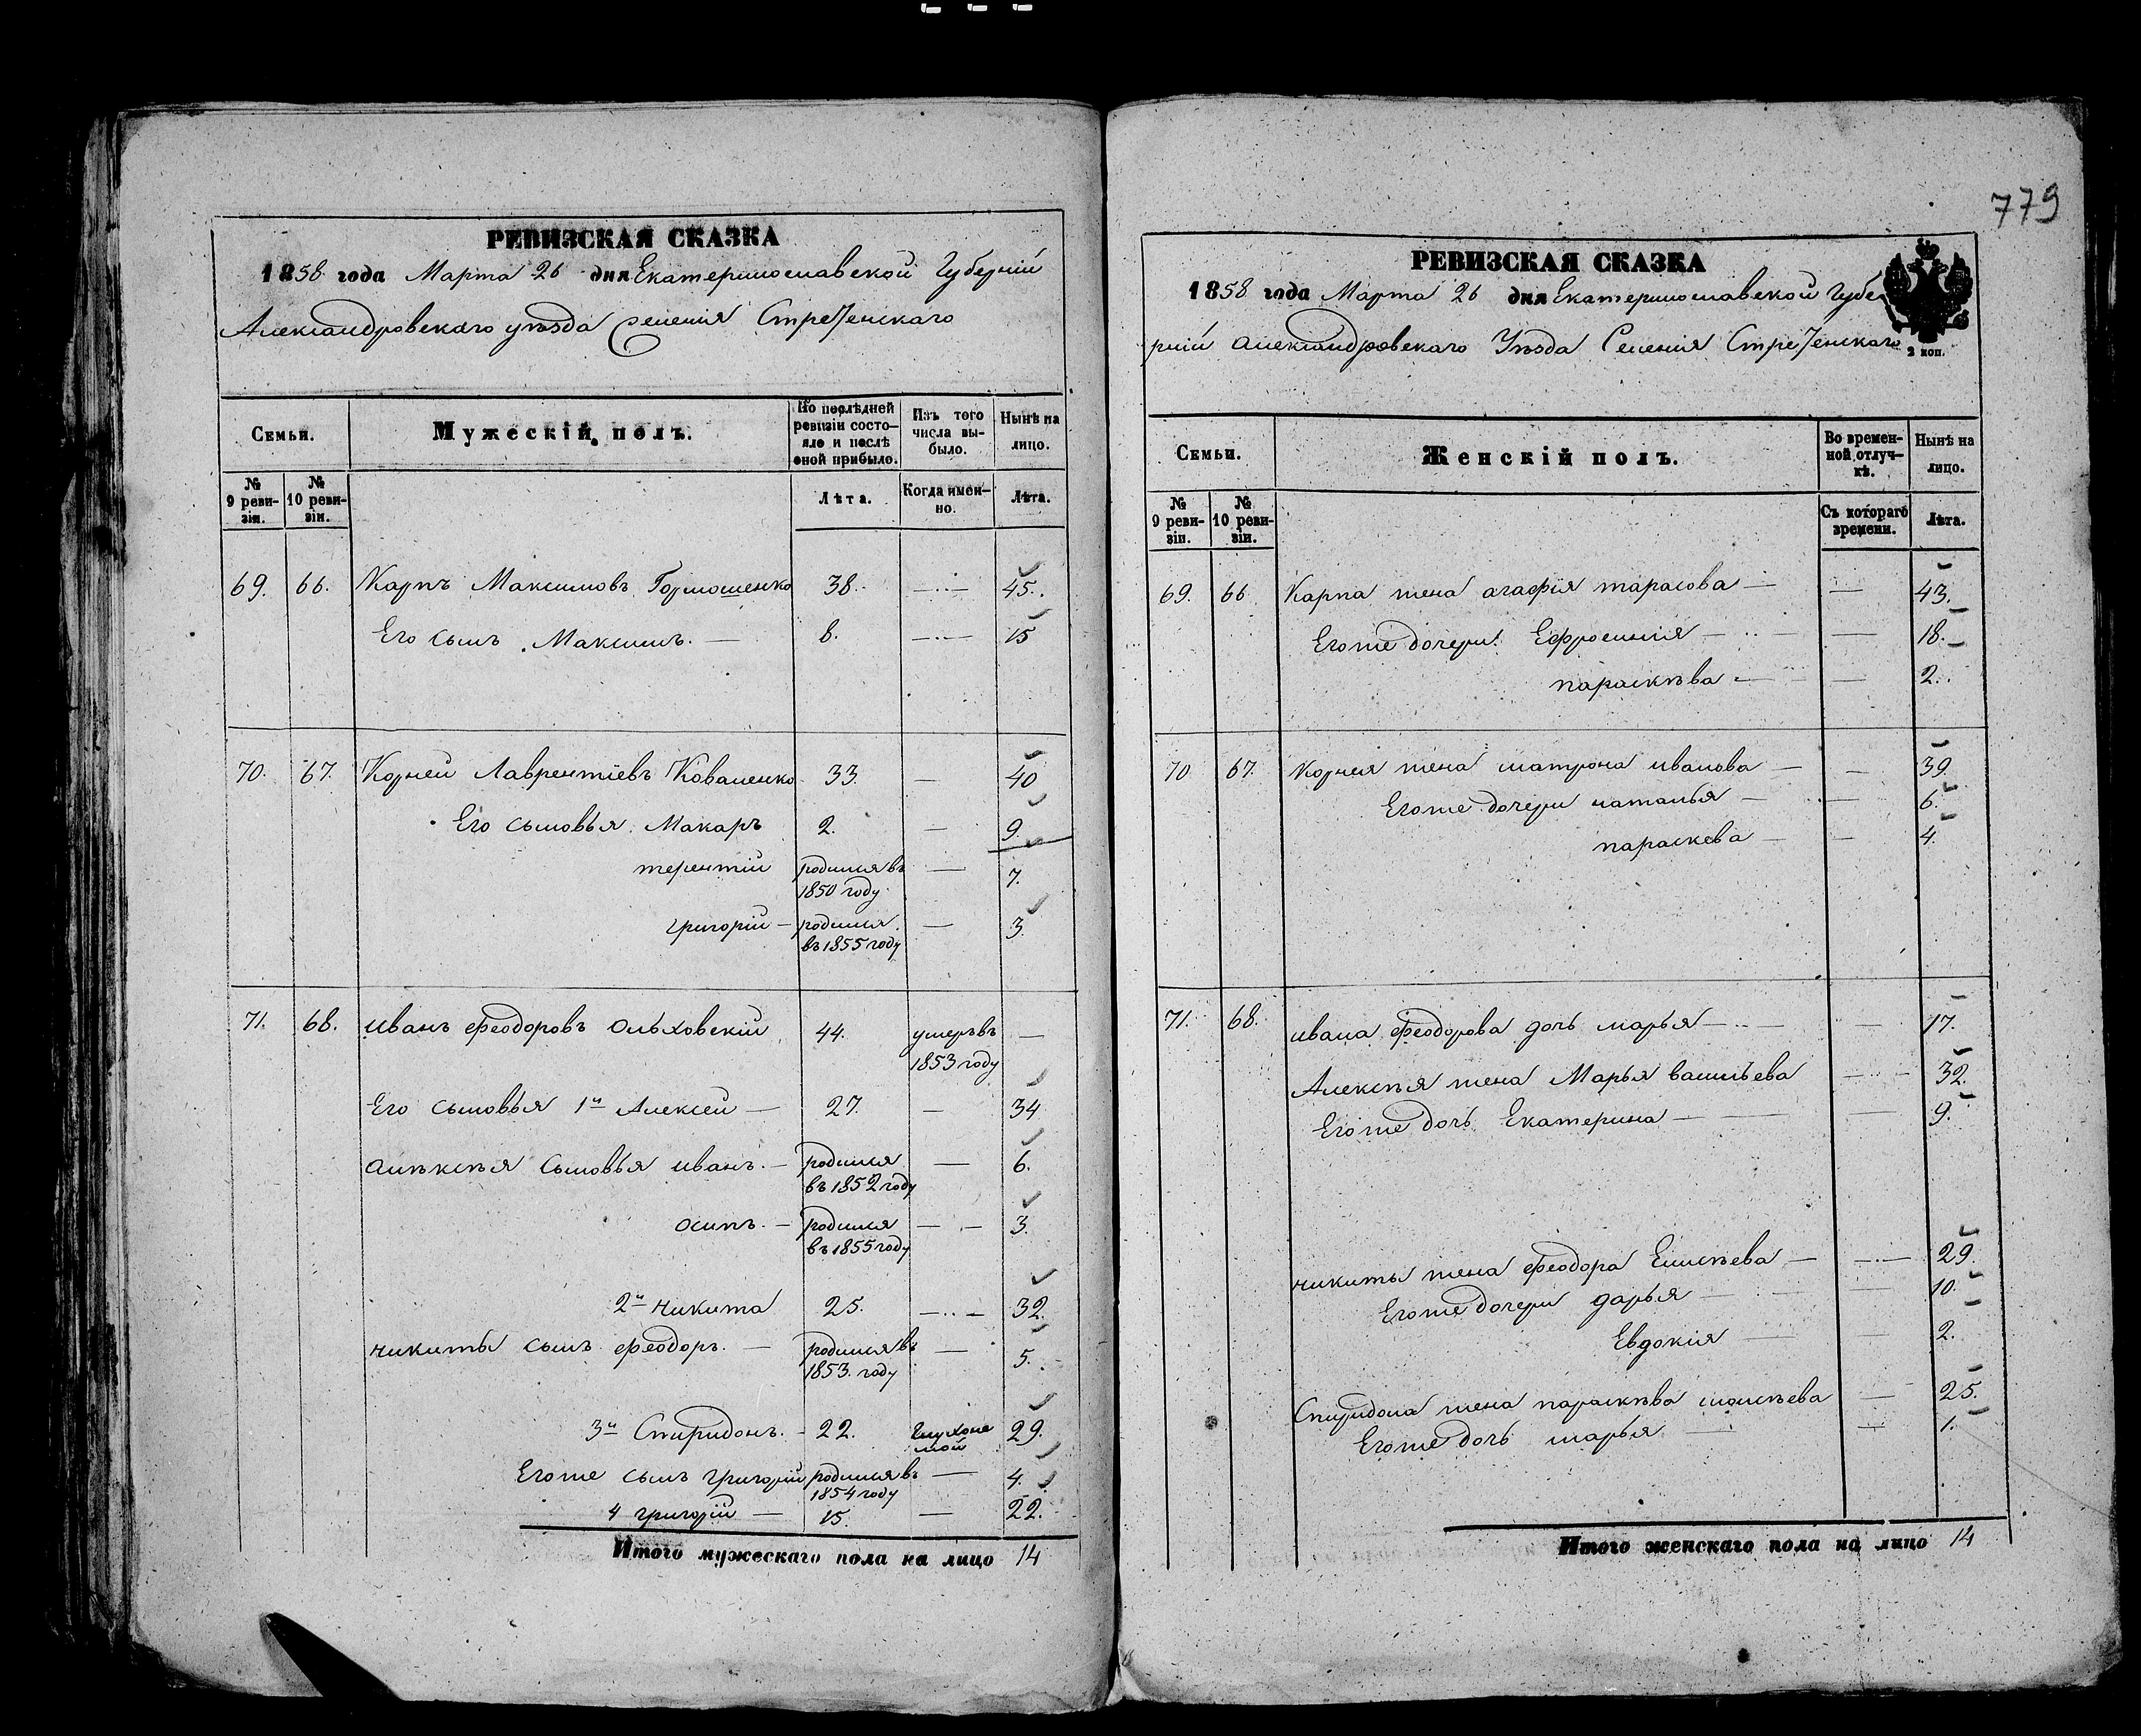 779
РЕВИЗСКАЯ СКАЗКА
1858 года Марта 26 дня Екатеринославской Губерніи
Александровскаго уѣзда Селенія Стретенскаго
Семьи.
Мужескій полъ.
По послѣдней ревизіи состояло и послѣ оной прибыло.
Изъ того числа выбыло.
Нынѣ на лицо.
№ 9 ревизіи.
№ 10 ревизіи.
Лѣта.
Когда именно.
Лѣта.
69. 66. Карпъ Максимовъ 38. — 45.
Его сынъ Максимъ. — 8. — 15
70. 67. Корней Лаврентіевъ Коваленко 33 — 40
Его сыновья Макаръ 2. — 9.
терентій родился въ 1850 году — 7.
григорій — родился въ 1855 году — 3.
71. 68. иванъ феодоровъ Ольховскій 44. умеръ въ 1853 году —
Его сыновья 1й Алексей — 27. — 34
алѣксѣя сыновья иванъ. — родился въ 1852 году — 6.
осипъ. — родился въ 1855 году — 3.
2й никита 25. — 32.
никиты сынъ феодоръ. — родился въ 1853. году — 5.
3й Спиридонъ. — 22. глухонемой 29.
Егоже сынъ григорій родился въ 1854 году — 4.
4 григорій — 15. — 22.
Итого мужескаго пола на лицо 14
РЕВИЗСКАЯ СКАЗКА
1858 года Марта 26 дня Екатеринославской Губе
рніи александровскаго Уѣзда Селенія Стретенскаго
2 коп.
Семьи.
Женскій полъ.
Во временной отлучкѣ.
Нынѣ на лицо.
№ 9 ревизіи.
№ 10 ревизіи.
Съ котораго времени.
Лѣта.
69. 66. Карпа жена агафія тарасова — — 43.
Егоже дочери: Ефросинія — — 18.
параскѣва — — 2.
70 67. Корнея жена матрона иванова — — 39.
Егоже дочери наталья — — 6.
параскева — — 4.
71. 68. ивана феодорова дочь марья — 17.
Алексѣя жена Марья васильева — 32.
Егоже дочь Екатерина — — 9.
никиты жена феодора Елисѣева — — 29.
Егоже дочери дарья — — 10.
Евдокія — — 2.
Спиридона жена параскѣва моисѣева — 25.
Егоже дочь марья — — 1.
Итого женскаго пола на лицо 14